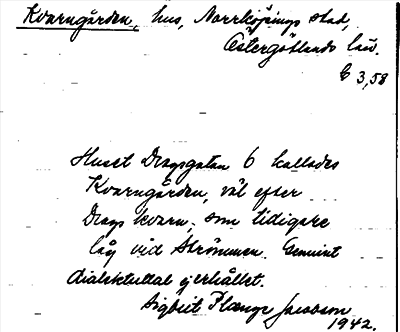 Kvarngården, hus, Norrköpings stad,
Östergötlands län.
E 3,58
Huset Dragsgatan 6 kallades
Kvarngården, väl efter
Drags kvarn, som tidigare
låg vid Strömmen. Genuint
dialektuttal ej erhållet.
Sigbrit Plænge Jacobson
1942.